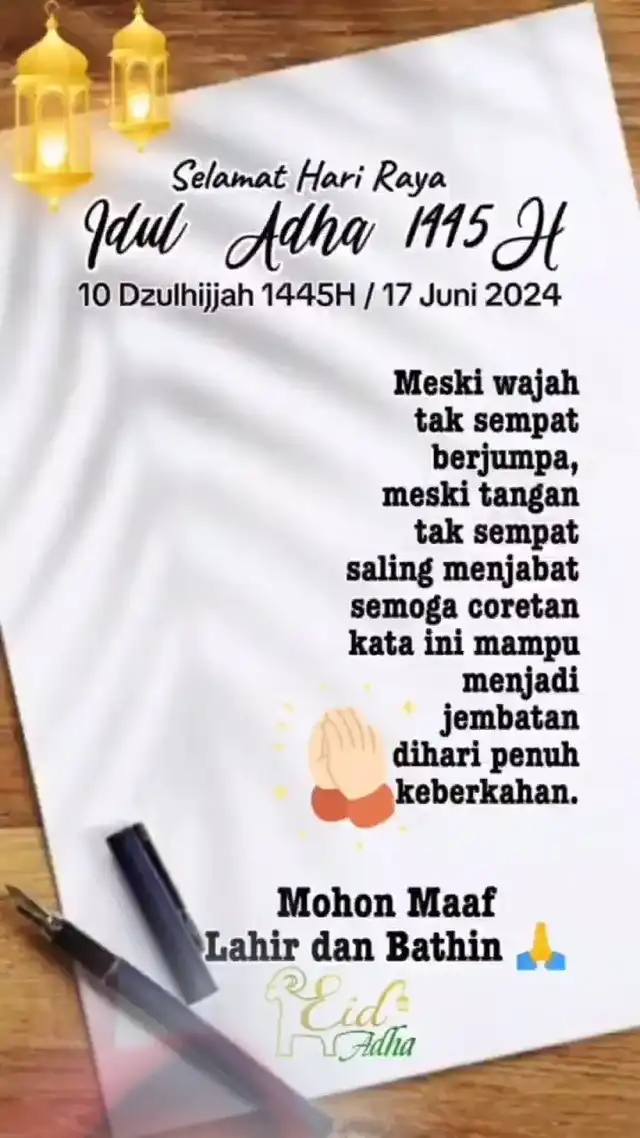 Selamat Hari Raya
Idul Adha 1445 H
10 Dzulhijjah 1445H / 17 Juni 2024
Meski wajah
tak sempat
berjumpa,
meski tangan
tak sempat
saling menjabat
semoga coretan
kata ini mampu
menjadi
jembatan
dihari penuh
keberkahan.
Mohon Maaf
Lahir dan Bathin 🙏
Eid
Adha